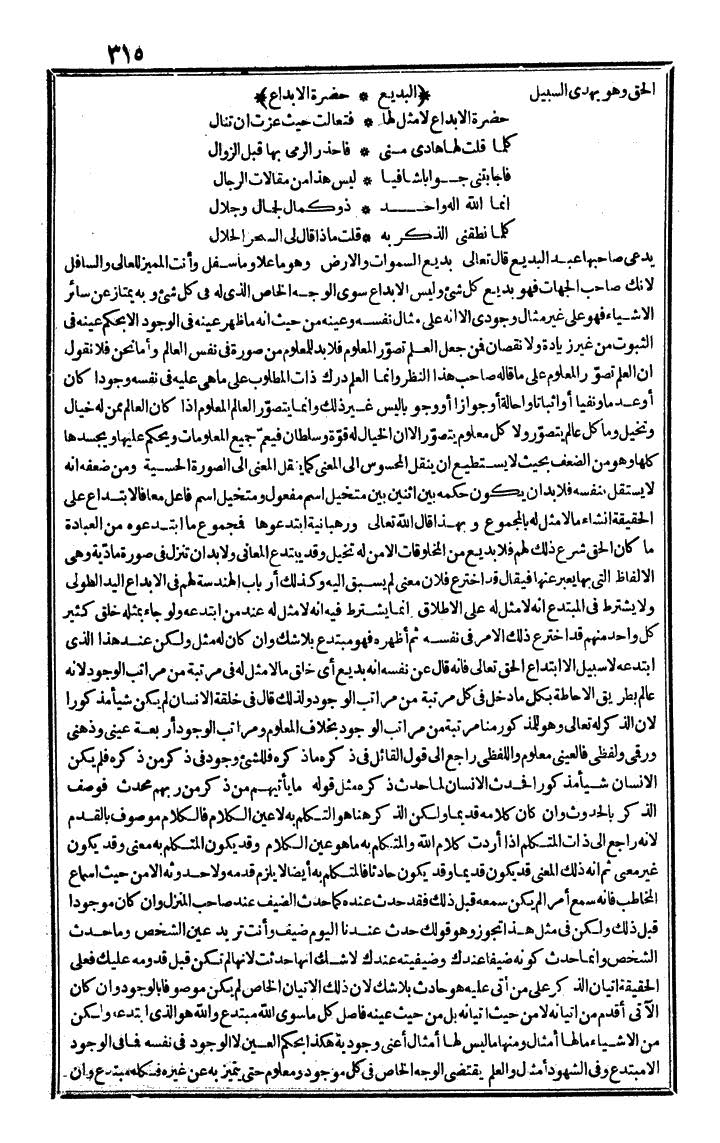 ٣١٥
الحق وهو يهدى السبيل ﴿البديع * حضرة الابداع﴾
حضرة الابداع لامثل لها * فتعالت حيث عزت ان تنال
كلما قلت لها هادى منى * فاحذر الرمى بها قبل الزوال
فاجابتنى جوابا شافيا * ليس هذا من مقالات الرجال
انما الله اله واحد * ذو كمال لجمال وجلال
كلما نطقنى الذكر به * قلت ماذا قال لى السحر الحلال
يدعى صاحبها عبد البديع قال تعالى بديع السموات والارض وهو ما علا وما سفل وأنت المميز للعالى والسافل
لانك صاحب الجهات فهو بديع كل شئ وليس الابداع سوى الوجه الخاص الذى له فى كل شئ وبه يمتاز عن سائر
الاشياء فهو على غير مثال وجودى الا انه على مثال نفسه وعينه من حيث انه ما ظهر عينه فى الوجود الا بحكم عينه فى
الثبوت من غير زيادة ولا نقصان فمن جعل العلم تصوّر المعلوم فلا بد للمعلوم من صورة فى نفس العالم وأما نحن فلا نقول
ان العلم تصوّر المعلوم على ما قاله صاحب هذا النظر وانما العلم درك ذات المطلوب على ما هى عليه فى نفسه وجودا كان
أو عدما ونفيا أو اثباتا واحالة أو جوازا أو وجوبا ليس غير ذلك وانما يتصوّر العالم المعلوم اذا كان العالم ممن له خيال
وتخيل وما كل عالم يتصوّر ولا كل معلوم يتصوّر الا ان الخيال له قوّة وسلطان فيعمّ جميع المعلومات ويحكم عليها ويجسدها
كلها وهو من الضعف بحيث لا يستطيع ان ينقل المحسوس الى المعنى كما ينقل المعنى الى الصورة الحسية ومن ضعفه انه
لا يستقل بنفسه فلا بد ان يكون حكمه بين اثنين بين متخيل اسم مفعول ومتخيل اسم فاعل معا فالابتداع على
الحقيقة انشاء ما لا مثل له بالمجموع وبهذا قال الله تعالى ورهبانية ابتدعوها فمجموع ما ابتدعوه من العبادة
ما كان الحق شرع ذلك لهم فلا بديع من المخلوقات الا من له تخيل وقد يبتدع المعانى ولا بد ان تنزل فى صورة مادّية وهى
الالفاظ التى بها يعبر عنها فيقال قد اخترع فلان معنى لم يسبق اليه وكذلك أرباب الهندسة لهم فى الابداع اليد الطولى
ولا يشترط فى المبتدع انه لا مثل له على الاطلاق انما يشترط فيه انه لا مثل له عند من ابتدعه ولو جاء بمثله خلق كثير
كل واحد منهم قد اخترع ذلك الامر فى نفسه ثم أظهره فهو مبتدع بلا شك وان كان له مثل ولكن عند هذا الذى
ابتدعه لا سبيل الا ابتداع الحق تعالى فانه قال عن نفسه انه بديع أى خلق ما لا مثل له فى مرتبة من مراتب الوجود لانه
عالم بطريق الاحاطة بكل ما دخل فى كل مرتبة من مراتب الوجود ولذلك قال فى خلقة الانسان لم يكن شيأ مذكورا
لان الذكر له تعالى وهو للمذكور منا مرتبة من مراتب الوجود بخلاف المعلوم ومراتب الوجود أربعة عينى وذهنى
ورقمى ولفظى فالعينى معلوم واللفظى راجع الى قول القائل فى ذكره ما ذكره فللشئ وجود فى ذكر من ذكره فلم يكن
الانسان شيأ مذكورا فحدث الانسان لما حدث ذكره مثل قوله ما يأتيهم من ذكر من ربهم محدث فوصف
الذكر بالحدوث وان كان كلامه قديما ولكن الذكر هنا هو التكلم به لا عين الكلام فالكلام موصوف بالقدم
لانه راجع الى ذات المتكلم اذا أردت كلام الله والمتكلم به ما هو عين الكلام وقد يكون المتكلم به معنى وقد يكون
غير معنى ثم انه ذلك المعنى قد يكون قديما وقد يكون حادثا فالمتكلم به أيضا لا يلزم قدمه ولا حدوثه الا من حيث اسماع
المخاطب فانه سمع أمرا لم يكن سمعه قبل ذلك فقد حدث عنده كما حدث الضيف عند صاحب المنزل وان كان موجودا
قبل ذلك ولكن فى مثل هذا تجوز وهو قولك حدث عندنا اليوم ضيف وأنت تريد عين الشخص وما حدث
الشخص وانما حدث كونه ضيفا عندك وضيفيته عندك لا شك انها حدثت لانها لم تكن قبل قدومه عليك فعلى
الحقيقة اتيان الذكر على من أتى عليه هو حادث بلا شك لان ذلك الاتيان الخاص لم يكن موصوفا بالوجود وان كان
الآتى أقدم من اتيانه لا من حيث اتيانه بل من حيث عينه فاصل كل ما سوى الله مبتدع والله هو الذى ابتدعه ولكن
من الاشياء ما لها أمثال ومنها ما ليس لها أمثال أعنى وجودية هكذا بحكم العين لا الوجود فى نفسه فما فى الوجود
الا مبتدع وفى الشهود أمثل والعلم يقتضى الوجه الخاص فى كل موجود ومعلوم حتى يتميز به عن غيره فكله مبتدع وان